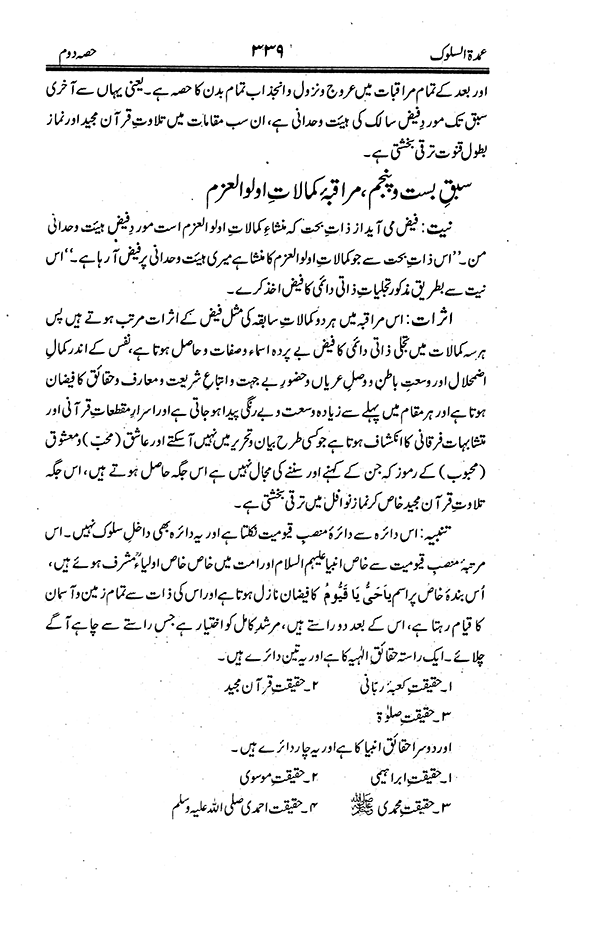 عمدۃ السلوک ۳۳۹ حصہ دوم
اور بعد کے تمام مراقبات میں عروج و نزول و انجذاب تمام بدن کا حصہ ہے۔ یعنی یہاں سے آخری
سبق تک موردِ فیض سالک کی ہیئت وحدانی ہے، ان سب مقامات میں تلاوتِ قرآن مجید اور نماز
بطولِ قنوت ترقی بخشتی ہے۔
سبقِ بست و پنجم، مراقبۂ کمالاتِ اولوالعزم
نیت: فیض می آید از ذاتِ بحت کہ منشاءِ کمالاتِ اولوالعزم است موردِ فیض ہیئت وحدانی
من۔ ’’اس ذاتِ بحت سے جو کمالاتِ اولوالعزم کا منشا ہے میری ہیئت وحدانی پر فیض آ رہا ہے۔‘‘ اس
نیت سے بطریقِ مذکور تجلیاتِ ذاتی دائمی کا فیض اخذ کرے۔
اثرات: اس مراقبہ میں ہر دو کمالاتِ سابقہ کی مثل فیض کے اثرات مرتب ہوتے ہیں پس
ہر سہ کمالات میں تجلی ذاتی دائمی کا فیض بے پردہ اسماء و صفات و حاصل ہوتا ہے، نفس کے اندر کمالِ
اضمحلال اور وسعتِ باطن و وصلِ عریاں و حضورِ بے جہت و اتباعِ شریعت و معارف و حقائق کا فیضان
ہوتا ہے اور ہر مقام میں پہلے سے زیادہ وسعت و بے رنگی پیدا ہو جاتی ہے اور اسرارِ مقطعاتِ قرآنی اور
متشابہات فرقانی کا انکشاف ہوتا ہے جو کسی طرح بیان و تحریر میں نہیں آسکتے اور عاشق (محبّ) و معشوق
(محبوب) کے رموز کہ جن کے کہنے اور سننے کی مجال نہیں ہے اس جگہ حاصل ہوتے ہیں، اس جگہ
تلاوتِ قرآن مجید خاص کر نماز نوافل میں ترقی بخشتی ہے۔
تنبیہ: اس دائرہ سے دائرۂ منصبِ قیومیت نکلتا ہے اور یہ دائرہ بھی داخلِ سلوک نہیں۔ اس
مرتبۂ منصبِ قیومیت سے خاص انبیا علیہم السلام اور امت میں خاص خاص اولیاءؒ مشرف ہوئے ہیں،
اُس بندۂ خاص پر اسمِ یَا حَیُّ یَا قَیُّومُ کا فیضان نازل ہوتا ہے اور اسی کی ذات سے تمام زمین و آسمان
کا قیام رہتا ہے، اس کے بعد دو راستے ہیں، مرشدِ کامل کو اختیار ہے جس راستے سے چاہے آگے
چلائے۔ ایک راستہ حقائقِ الٰہیہ کا ہے اور یہ تین دائرے ہیں۔
۱۔ حقیقتِ کعبۂ ربانی ۲۔ حقیقتِ قرآن مجید
۳۔ حقیقتِ صلوٰۃ
اور دوسرا حقائقِ انبیا کا ہے اور یہ چار دائرے ہیں۔
۱۔ حقیقتِ ابراہیمی ۲۔ حقیقتِ موسوی
۳۔ حقیقتِ محمدی ﷺ ۴۔ حقیقت احمدی صلی اللہ علیہ وسلم